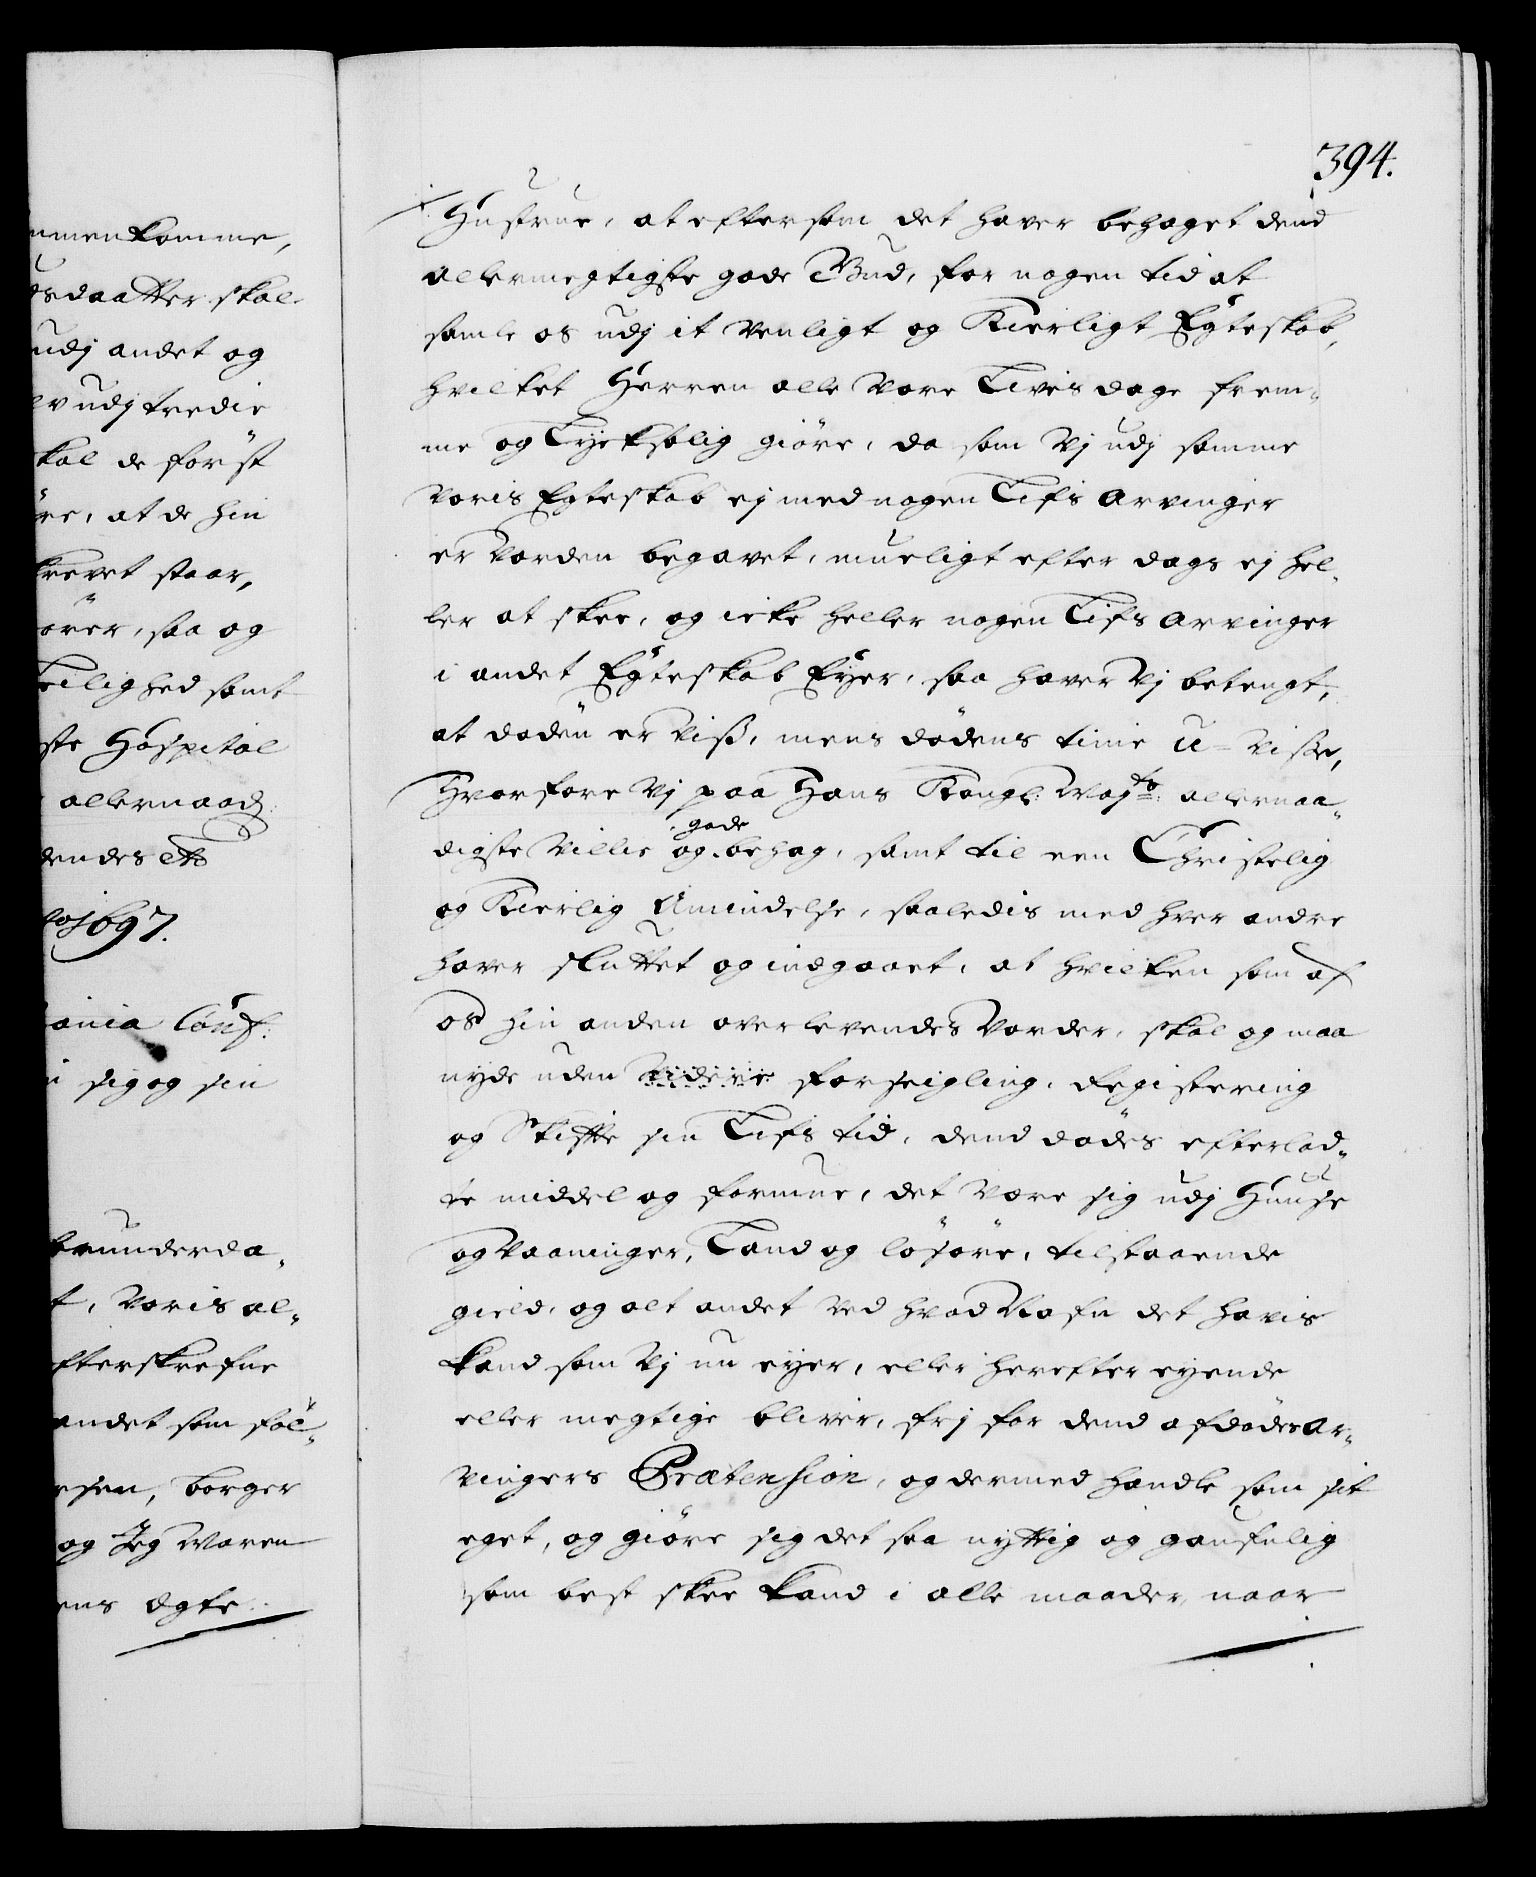 394.
mmen komme,
dsdaatter skal
udj andet og
lv udj tredie
kal de først
re, at de hin
krevet staar,
ører, saa og
eilighed samt
ste Hospital
allernaad:
dendes etc
1697.
ania Conf:
sig og sin
brunderda-
t, voris al-
fterskrefne
andet som føl-
esen, borger
og Jeg Maren
ens Egte
Hustrue, at eftersom det haver behaget dend
allermegtigste gode Gud, for nogen tid at
samle os udj it venligt og Kierligt Egteskab,
hvilket Herren alle vore Livis dage frem-
me og Lyksalig giøre, da som vj udj samme
voris Egteskab ej med nogen Lifs arvinger
er vorden begavet, mueligt efter dags ej hel-
ler at skee, og icke heller nogen Lifs arvinger
i andet Egteskab Eyer, saa haver vj betengt,
at døden er viss, mens dødens time u-visse,
Hvorfore vj paa Hans Kongl: Mayts: allernaa-
digste villie og gode behag, samt til een Christelig
og Kierlig Amindelse, saaledis med hver andre
haver sluttet og indgaaet, at hvilken som af
os hin anden overlevendes vorder, skal og maa
nyde uden videre forseigling, Registering
og Skifte sin Lifs tid, dend dødes efterlad-
te middel og formue, det være sig udj Huuse
og vaaninger, Land og løsøre, tilstaaende
gield, og alt andet ved hvad Nafn det hafvis
kand som vj nu eyer, eller herefter eyende
eller megtige bliver, frj for dend afdødes ar-
vingers Prætension, og dermed handle som sit
eget, og giøre sig det saa nyttig og gaufnlig
som best skee kand i alle maader, naar